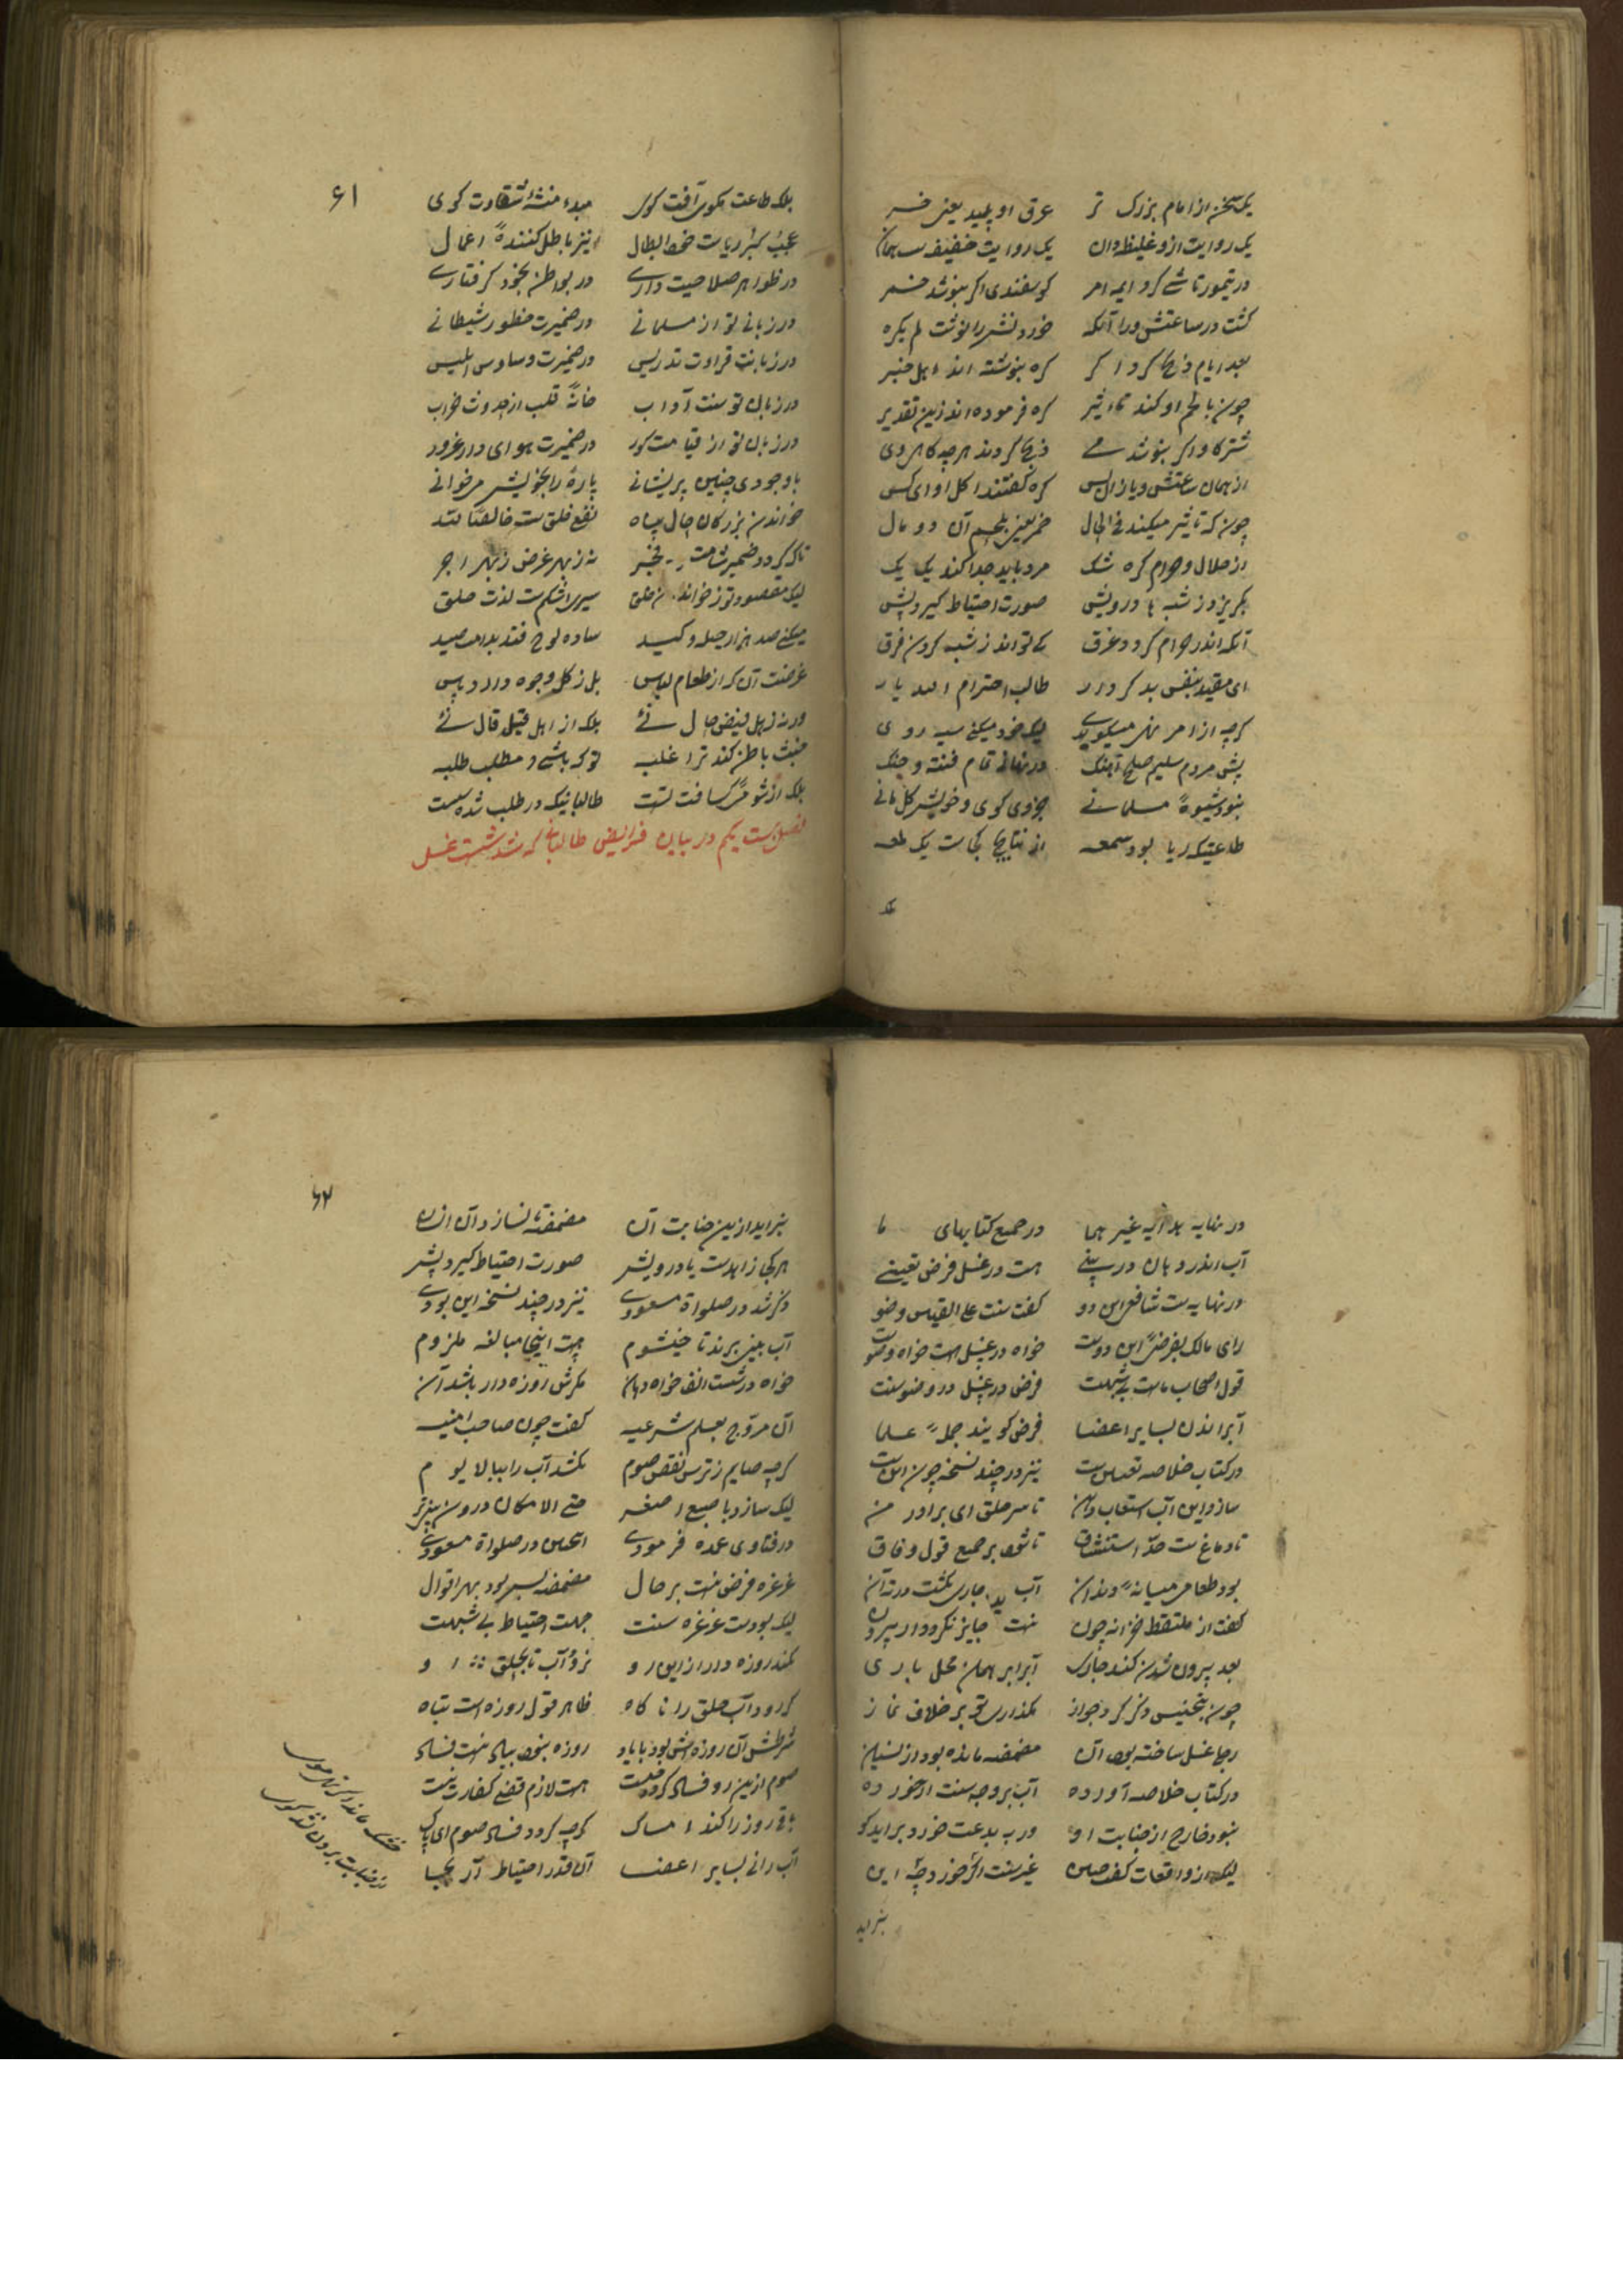 یک سخن از امام بزرک تر عرق او پلید یعنی خر
یک روایت ازو غلیظ دان یک روایت خفیف هست همان
در تیمورتاشے کرد ایه امر کوسفندی اکر بنوشد خمر
کشت در ساعتش ورا آنکه خوردنش را نوشت لم یکره
بعد ایام ذبح کرد اکر کره بنوشته اند اهل خبر
چون با لحم او کند تاثیر کره فرموده اند زین تقدیر
شتر کاو اکر بنوشد مے ذبح کردند هرچه کاهروی
از همان ساعتش و یا زان پس کره کفتند اکل او ای کس
چون که تاثیر میکند فی الحال خمر یعنی بلحم آن دو مال
از حلال و حرام کره شک مرد باید جدا کند یک یک
بکریز و ز شبه با درویش صورت احتیاط کیر و پیش
آنکه اندر حرام کردد غرق کے تواند ز شبه کردن فرق
ای مقید بنفس بد کردار طالب احترام
کرچه از امر نهی میکویے لیک خود میکنے سیه روی
پیش مردم سلیم صلح آهنک در نهانے تمام فتنه و جنک
بنود شیوهٔ مسلمانے جزوی کوی و خویش کل مانے
طاعتیکه ریا بود سمعه از نتایج کجاست یک لمعه
بلکه
۶۱
بلکه طاعت مکوی آفت کوی مبدء منشا شقاوت کوی
عجب کبر ریاست خط ابطال نیز باطل کنندهٔ اعمال
در ظواهر صلاحیت دارے در بواطن بخود کرفتارے
در زبانے تو از مسلمانے در ضمیرت منظور شیطانے
در زبانت قرادت تدریس در ضمیرت وساوس ابلیس
در زبان تو سنت آداب خانهٔ قلب از حدوث خراب
در زبان تو از قیامت کور در ضمیرت هوای دار غرور
با وجودی چنین پریشانے پارهٔ را بخویش مرخوانے
خواندن بزرکان حال پناه نفع خلق ست خالصا لله
تا که کردد ضمیر شامت فجر نه ز بهر غرض ز بهر اجر
لیک مقصود تو ز خواندن خلق سیری اشکم ست لذت حلق
میکنے صد هزار حیله و کید ساده لوح فتد بدامت صید
غرضت آن که از طعام لباس بل ز کل وجوه دارد پاس
ور نه ز اهل فیض حال نئے بلکه از اهل قیل و قال نئے
خبث باطن کند ترا غلبه تو که باشے و مطلب طلبه
بلکه از شومی کسافت تست طالبانیکه در طلب شده سست
فصل بیست یکم در بیان فرایض طالبانے که شد شست غسل
در نهایه هدایه غیر هما در جمیع کتابهای ما
آب اندر دهان در بینے هست در غسل فرض تعیینے
در نهایه ست شافعی این دو کفت سنت علی القیاس وضو
رای مالک بفرض این دوست خواه در غسل هست خواه وضوست
قول اصحاب ماست بے شبهت فرض در غسل در وضو سنت
آب راندن بسایر اعضا فرض کویند جملهٔ علما
در کتاب خلاصه تعیین ست نیز در چند نسخه چون این ست
سازد این آب استعاب دهن تا سر حلق ای برادر من
تا دماغ ست حد استنشاق تا شود بر جمیع قول وفاق
بود طعامی میانهٔ دندان آب جاری نکشت در ته آن
کفت از ملتقط خزانه چون نیست جایز نکردد ار بیرون
بعد بیرون شدن کند جاری آب را بر همان محل باری
چون بتجنیس ذکر کرد جواز نکذاری تو بر خلاف نماز
رجل غسل ساخته بود آن مضمضه مانده بود از نسیان
در کتاب خلاصه آورده آب بر وجه سنت ار خورده
نبود خارج از جنابت او ور به بدعت خورد براید کو
لیک از واقعات کفت حسن غیر سنت اکر خورد چه این
نیز اید
۶۲
نبراید ازین جنابت آن مضمضه تا نسازد آن انسان
هر کجا زاهدست یا درویش صورت احتیاط کیرد پیش
ذکر شد در صلواة مسعودے نیز در چند نسخه این بودے
آب بینی برند تا خیشوم هست اینجا مبالغه ملزوم
خواه در شست انف خواه دهان مکرش روزه دار باشد آن
آن مروج بعلم شرعیه کفت چون صاحب امنیه
کرچه صایم ز ترس نقص صوم نکشد آب را ببالا یوم
لیک سازد با صبع اصغر حتے الامکان درون بینے تر
در فتاوی عمده فرمودے اینچنین در صلواة مسعودے
غرغره فرض نیست بر حال مضمضه بس بود بهر اقوال
لیک بودست غرغره سنت جهت احتیاط بے شبهت
نکند روزه دار ازین رو نرود آب تا بحلق او
کر رود آب حلق را ناکاه ظاهر قول روزه است تباه
شرطش آن روزه اش بود با یاد روزه بنود بیاد نیست فساد
صوم ازین رو فساد کرده قلت هست لازم قضے کفارت نیست
باقے روز را کند امساک کرچه کردد فساد صوم ای پاک
آب رانے بسایر اعضا آن قدر احتیاط آر بجا
خشک ماند اکر سر موی
از جنابت برون نه شوی